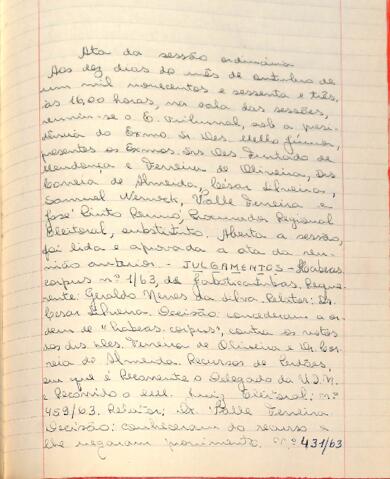 Ata da sessão ordinária
Aos dez dias do mês de outubro de
um mil novecentos e sessenta e três,
às 16,00 horas, na sala das sessões,
reuniu-se o E. Tribunal, sob a presi-
dência do Exmo. Sr. Des. Mello Júnior,
presentes os Exmos. Srs. Des. Furtado de
Mendonça e Ferreira de Oliveira, Drs.
Correia de Almeida, César Silveira,
Samuel Werneck, Valle Ferreira e
José Pinto Renno, Procurador Regional
Eleitoral, substituto. Aberta a sessão,
foi lida e aprovada a ata da reu-
nião anterior. - JULGAMENTOS - Habeas
corpus nº 1/63, de Reque-
rente: Geraldo Neves da Silva. Relator: Dr.
César Silveira. Decisão: concederam a or-
dem de "habeas-corpus", contra os votos
dos srs. Des. Ferreira de Oliveira e Dr. Cor-
reia de Almeida. Recursos de
em que é Recorrente o Delegado da U.D.N.
e Recorrido o MM. Juiz Eleitoral: nº
459/63. Relator: Dr. Valle Ferreira.
Decisão: conheceram do recurso e
lhe negaram provimento. Nº 431/63